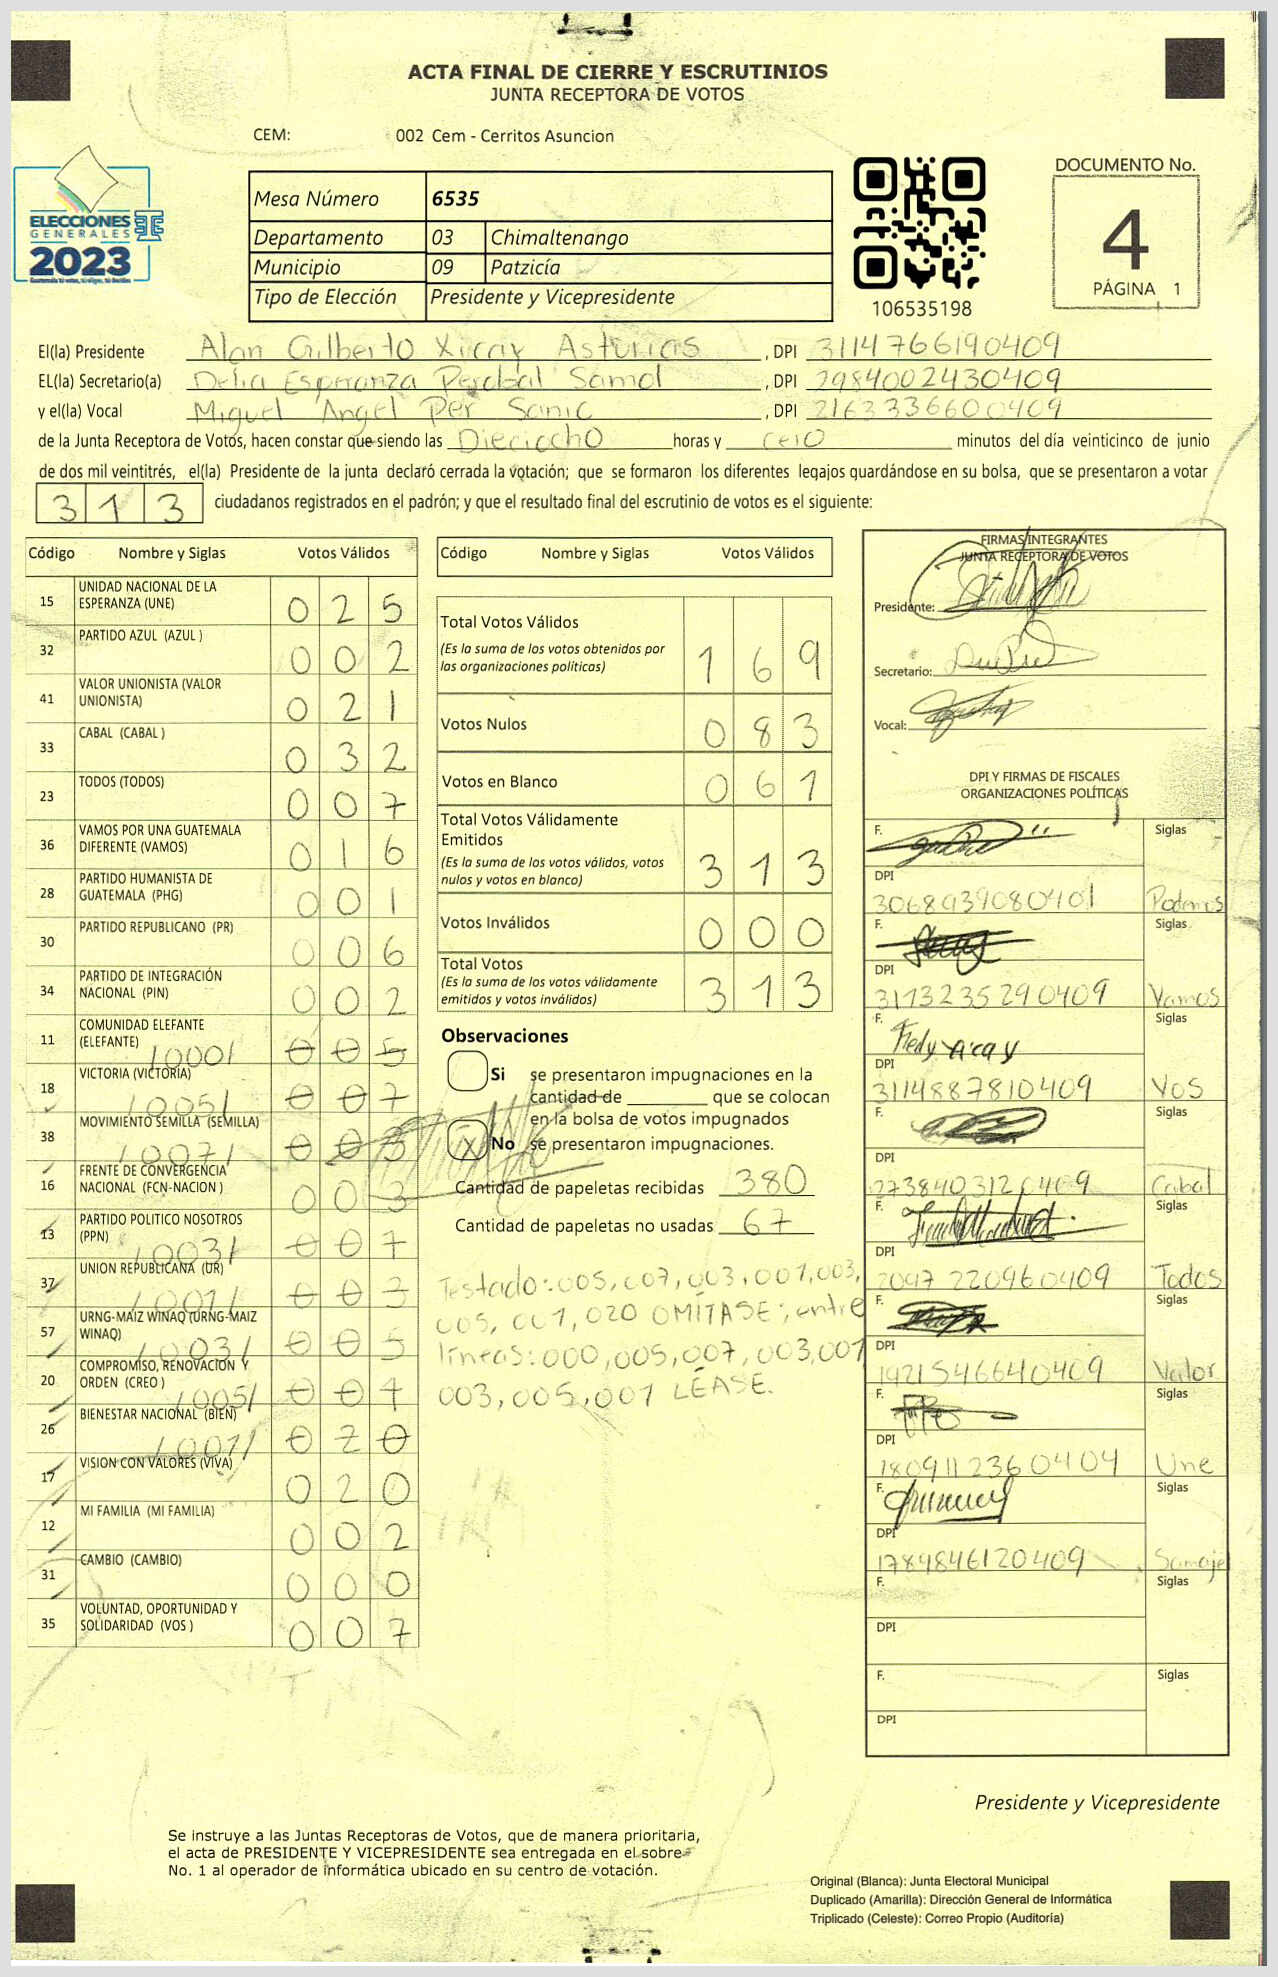 ACTA FINAL DE CIERRE Y ESCRUTINIOS
JUNTA RECEPTORA DE VOTOS
CEM: 002 Cem - Cerritos Asuncion
ELECCIONES
GENERALES
2023
Mesa Número 6535
Departamento 03 Chimaltenango
Municipio 09 Patzicía
Tipo de Elección Presidente y Vicepresidente
106535198
DOCUMENTO No.
4
PÁGINA 1
El(la) Presidente Alan Gilberto Xicay Asturias, DPI 3114766190409
EL(la) Secretario(a) Delia Esperanza Percibal Samol, DPI 2984002430409
y el(la) Vocal Miguel Angel Per Sanic, DPI 2163336600409
de la Junta Receptora de Votos, hacen constar que siendo las Dieciocho horas y cero minutos del día veinticinco de junio
de dos mil veintitrés, el(la) Presidente de la junta declaró cerrada la votación; que se formaron los diferentes legajos guardándose en su bolsa, que se presentaron a votar
313 ciudadanos registrados en el padrón; y que el resultado final del escrutinio de votos es el siguiente:
Código Nombre y Siglas Votos Válidos
15 UNIDAD NACIONAL DE LA ESPERANZA (UNE) 025
32 PARTIDO AZUL (AZUL ) 002
41 VALOR UNIONISTA (VALOR UNIONISTA) 021
33 CABAL (CABAL ) 032
23 TODOS (TODOS) 007
36 VAMOS POR UNA GUATEMALA DIFERENTE (VAMOS) 016
28 PARTIDO HUMANISTA DE GUATEMALA (PHG) 001
30 PARTIDO REPUBLICANO (PR) 006
34 PARTIDO DE INTEGRACIÓN NACIONAL (PIN) 002
11 COMUNIDAD ELEFANTE (ELEFANTE) /000/ 005
18 VICTORIA (VICTORIA) /005/ 007
38 MOVIMIENTO SEMILLA (SEMILLA) /007/ 003
16 FRENTE DE CONVERGENCIA NACIONAL (FCN-NACION ) 003
13 PARTIDO POLITICO NOSOTROS (PPN) /003/ 007
37 UNION REPUBLICANA (UR) /001/ 003
57 URNG-MAIZ WINAQ (URNG-MAIZ WINAQ) /003/ 005
20 COMPROMISO, RENOVACION Y ORDEN (CREO ) /005/ 001
26 BIENESTAR NACIONAL (BIEN) /001/ 020
17 VISION CON VALORES (VIVA) 020
12 MI FAMILIA (MI FAMILIA) 002
31 CAMBIO (CAMBIO) 000
35 VOLUNTAD, OPORTUNIDAD Y SOLIDARIDAD (VOS ) 007
Código Nombre y Siglas Votos Válidos
Total Votos Válidos 169
(Es la suma de los votos obtenidos por
las organizaciones políticas)
Votos Nulos 083
Votos en Blanco 061
Total Votos Válidamente
Emitidos 313
(Es la suma de los votos válidos, votos
nulos y votos en blanco)
Votos Inválidos 000
Total Votos 313
(Es la suma de los votos válidamente
emitidos y votos inválidos)
Observaciones
Si se presentaron impugnaciones en la
cantidad de ________ que se colocan
en la bolsa de votos impugnados
X No se presentaron impugnaciones.
Cantidad de papeletas recibidas 380
Cantidad de papeletas no usadas 67
Testado: 005, 007, 003, 001, 003,
005, 001, 020 OMÍTASE; entre
líneas: 000, 005, 007, 003, 001
003, 005, 001 LÉASE.
FIRMAS INTEGRANTES
JUNTA RECEPTORA DE VOTOS
Presidente:
Secretario:
Vocal:
DPI Y FIRMAS DE FISCALES
ORGANIZACIONES POLÍTICAS
F. Siglas
DPI 3068939080401 Podemos
F. Siglas
DPI 3173235290409 Vamos
F. Fredy Xicay Siglas
DPI 3114887810409 VOS
F. Siglas
DPI 2738403120409 Cabal
F. Siglas
DPI 2047 220960409 Todos
F. Siglas
DPI 1921546640409 Valor
F. Siglas
DPI 1809112360404 Une
F. Siglas
DPI 1784846120409
F. Siglas
DPI
F. Siglas
DPI
Presidente y Vicepresidente
Se instruye a las Juntas Receptoras de Votos, que de manera prioritaria,
el acta de PRESIDENTE Y VICEPRESIDENTE sea entregada en el sobre
No. 1 al operador de informática ubicado en su centro de votación.
Original (Blanca): Junta Electoral Municipal
Duplicado (Amarilla): Dirección General de Informática
Triplicado (Celeste): Correo Propio (Auditoría)